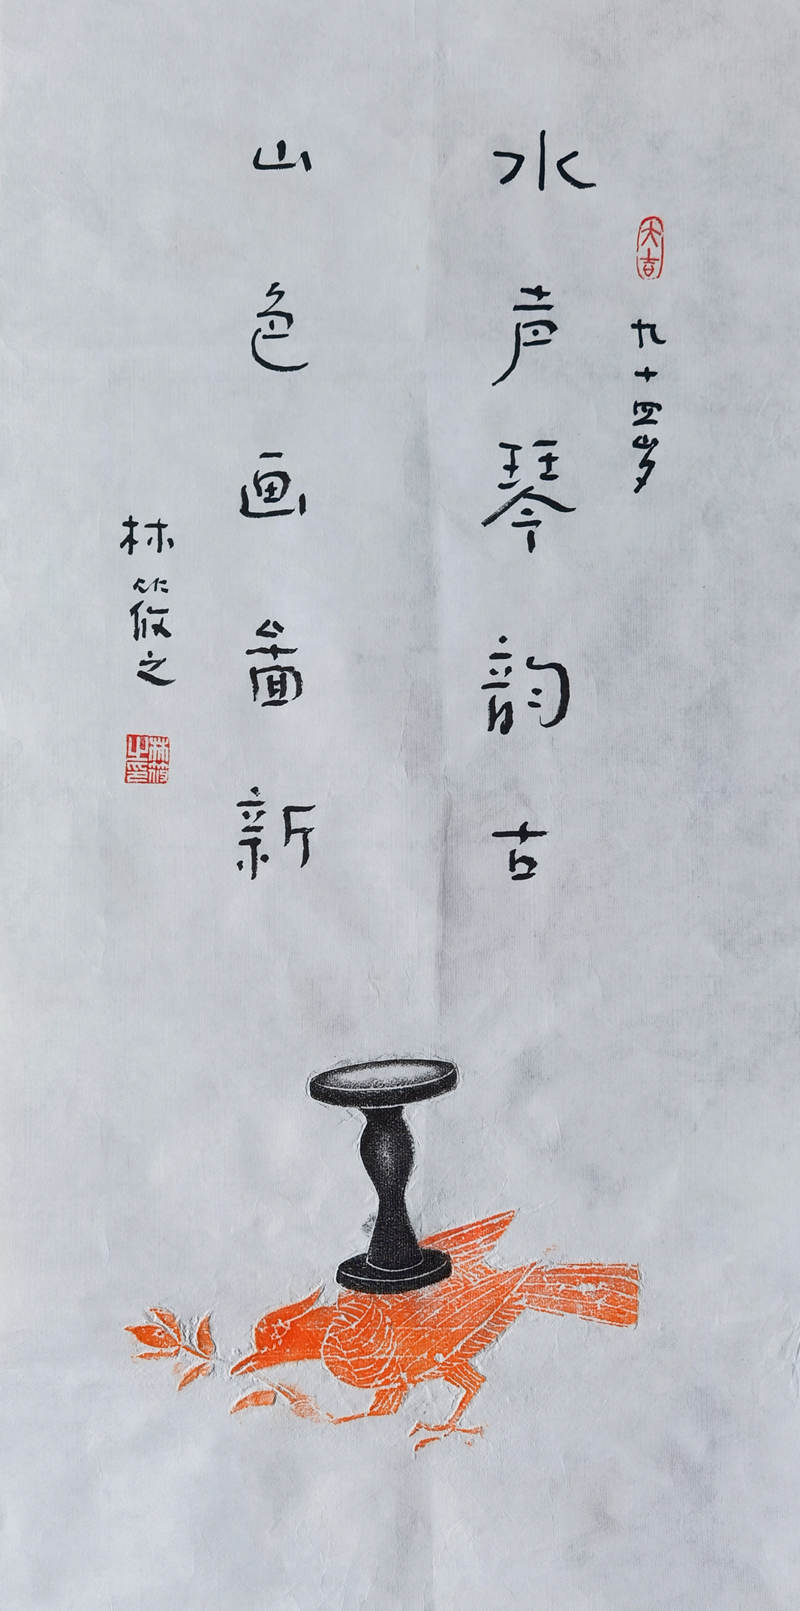 大吉
九十四岁
水声琴韵古
山色画图新
林筱之
林筱之印